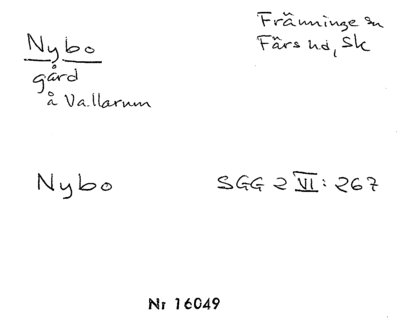 Nybo
gård
å Vallarum
Främninge sn
Färs hd, Sk
Nybo
SGG 2 VI: 267
Nr 16049